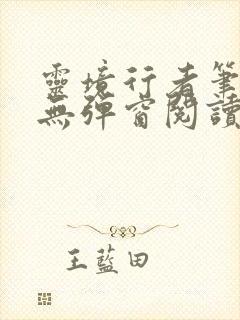 靈境行者筆
無彈窗閱讀
王藍田